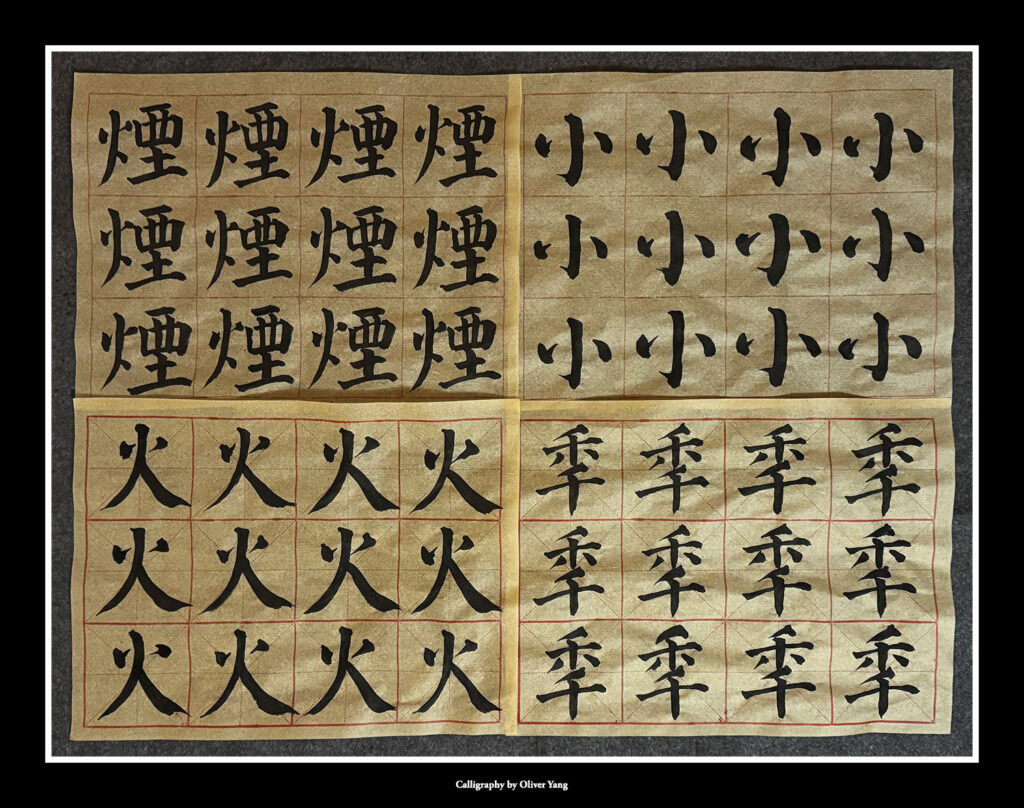 煙煙煙煙
煙煙煙煙
煙煙煙煙
小小小小
小小小小
小小小小
火火火火
火火火火
火火火火
秊秊秊秊
秊秊秊秊
秊秊秊秊
Calligraphy by Oliver Yang